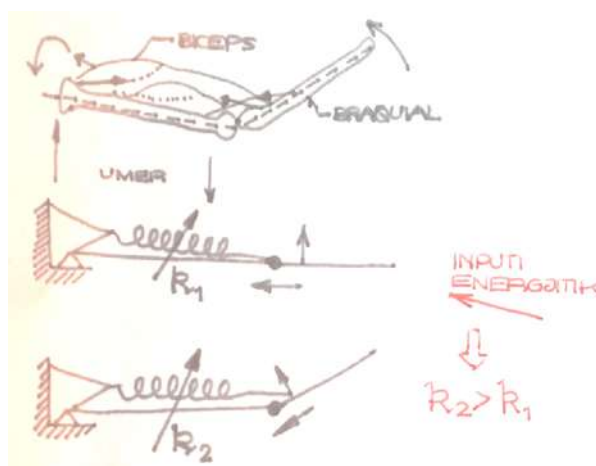 BICEPS
BRAQUIAL
UMER
k1
INPUT
ENERGETIK
k2>k1
k2